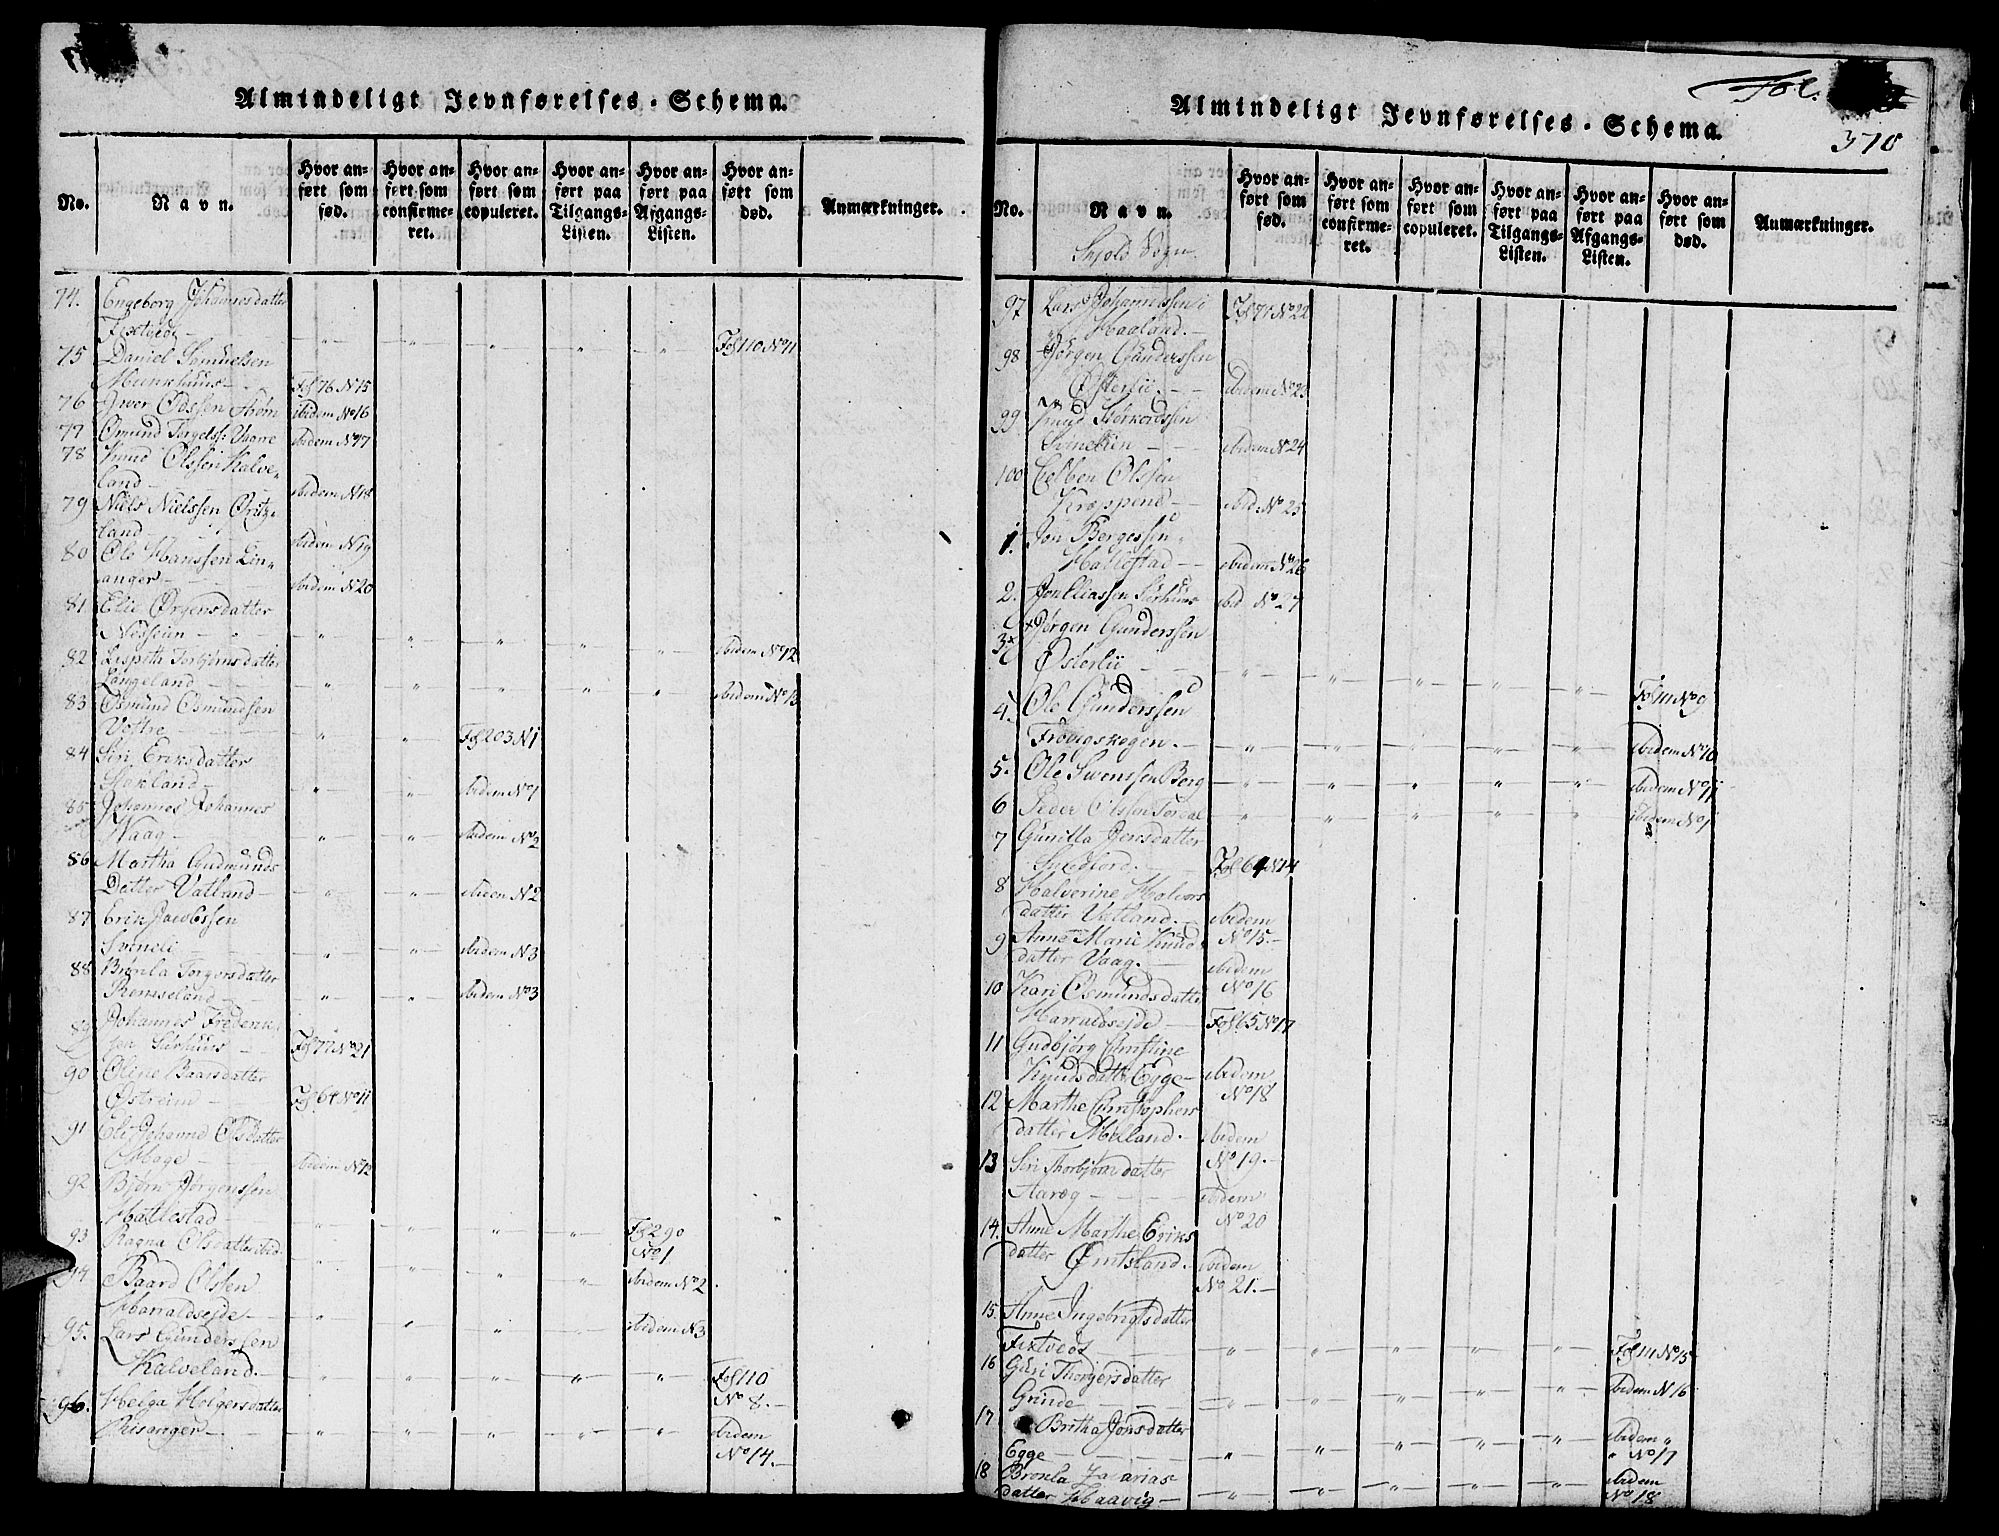 Almindeligt Jevnførelses-Schema.
No.
Navn.
Hvor anført som fød.
Hvor anført som confirmeret.
Hvor anført som copuleret.
Hvor anført paa Tilgangs-Listen.
Hvor anført paa Afgangs-Listen.
Hvor anført som død.
Anmærkninger.
74. Engeborg Johannesdatter
Fixtvedt - " " " " " Fol 110 No 11
75 Daniel Samuelsen
Munkhuus - Fol 76 N 15
76 Iver Odssen Strøm ibidem No 16
77 Omund Torgelss: Vaage ibidem No 17
78 Knud Olssen Kalve-
land - ibidem N 18
79 Niels Nielssen Øritz-
land - ibidem N 19
80 Ole Hanssen Lin-
anger - ibidem N 20
81 Elie Ørgensdatter
Nesseim - " " " " " ibidem No 12
82 Lispeth Torbjørnsdatter
Langeland - " " " " " ibidem No 13
83 Osmund Osmundsen
Vestre - " " Fol 203 N 1
84 Siri Eriksdatter
Stakland - " " ibidem No 1
85 Johannes Johannes
Waag - " " ibidem No 2
86 Martha Gudmunds
Datter Vatland - " " ibidem N 2
87 Erik Jacobssen
Svineli - " " ibidem N 3
88 Brønla Torgersdatter
Romseland - " " ibidem No 3
89 Johannes Frederik-
sen Sørhuus - Fol 77 No 21
90 Oline Baarsdatter
Østreim - Fol 64 No 11
91 Eli Johanna Olsdatter
Hoge - ibidem No 12
92 Bjørn Jørgenssen
Hallestad - " " " " Fol 290
93 Ragna Olsdatter ibid. No 1
94 Baard Olssen ibidem No 2
Harraldseide - " " " " ibidem N 3
95. Lars Gunderssen
Kalveland. - " " " " " Fol 110
No 8. -
96. Helga Holgersdatter
Risanger - " " " " " ibidem
No 14. -
Fol.
370
Almindeligt Jevnførelses-Schema.
No.
Navn.
Skjold Sogn.
Hvor anført som fød.
Hvor anført som confirmeret.
Hvor anført som copuleret.
Hvor anført paa Tilgangs-Listen.
Hvor anført paa Afgangs-Listen.
Hvor anført som død.
Anmærkninger.
97 Lars Johannessen i Fol 77 No 22
Haaland. -
98 Jørgen Gunderssen
Østerlie. - ibidem No 23
99 Knud Størkerssen
Svinelien - ibidem No 24
100 Eelben Olssen
Kroppend - ibid No 25
1. Jon Bergessen
Hallestad - ibidem No 26
2. Jon Eliassen Sørhuus ibid No 27
3 Jørgen Gunderssen
Østerlie - " " " " " Fol 111 No 9
4. Ole Gunderssen
Frøvigskogen. - " " " " " ibidem No 10
5. Ole Svenssen Berg " " " " " ibidem No 11
6 Peder Olssen " " " " " ibidem No 1
7 Gunilla Jensdatter 2
- Fol 64 N 14
8 Halverine Halvors
datter Vatland. - ibidem
No 15. -
9 Anne Marie Knuds
datter Vaag. - ibidem
No 16
10 Kari Osmundsdatter
Harraldseide - Fol 65 No 17
11 Gudbjørg Christine
Knudsdatter Egge - ibidem
No 18
12 Marthe Christophers
datter Mølland. - ibidem
No 19. -
13 Siri Thorbjørnsdatter
Aarøg - ibidem
No 20
14. Anne Marthe Eriks
datter Ørntsland. - ibidem
No 21. -
15. Anne Ingebrigtsdatter
Fixtvedt - " " " " " Fol 111 No 15
16 Guri Thorgersdatter
Grinde - " " " " " ibidem N 16
17 Britha Jonsdatter
Egge - " " " " " ibidem "
" No 17
18 Brønla Zacarias
datter Haavig - " " " " " ibidem
No 18